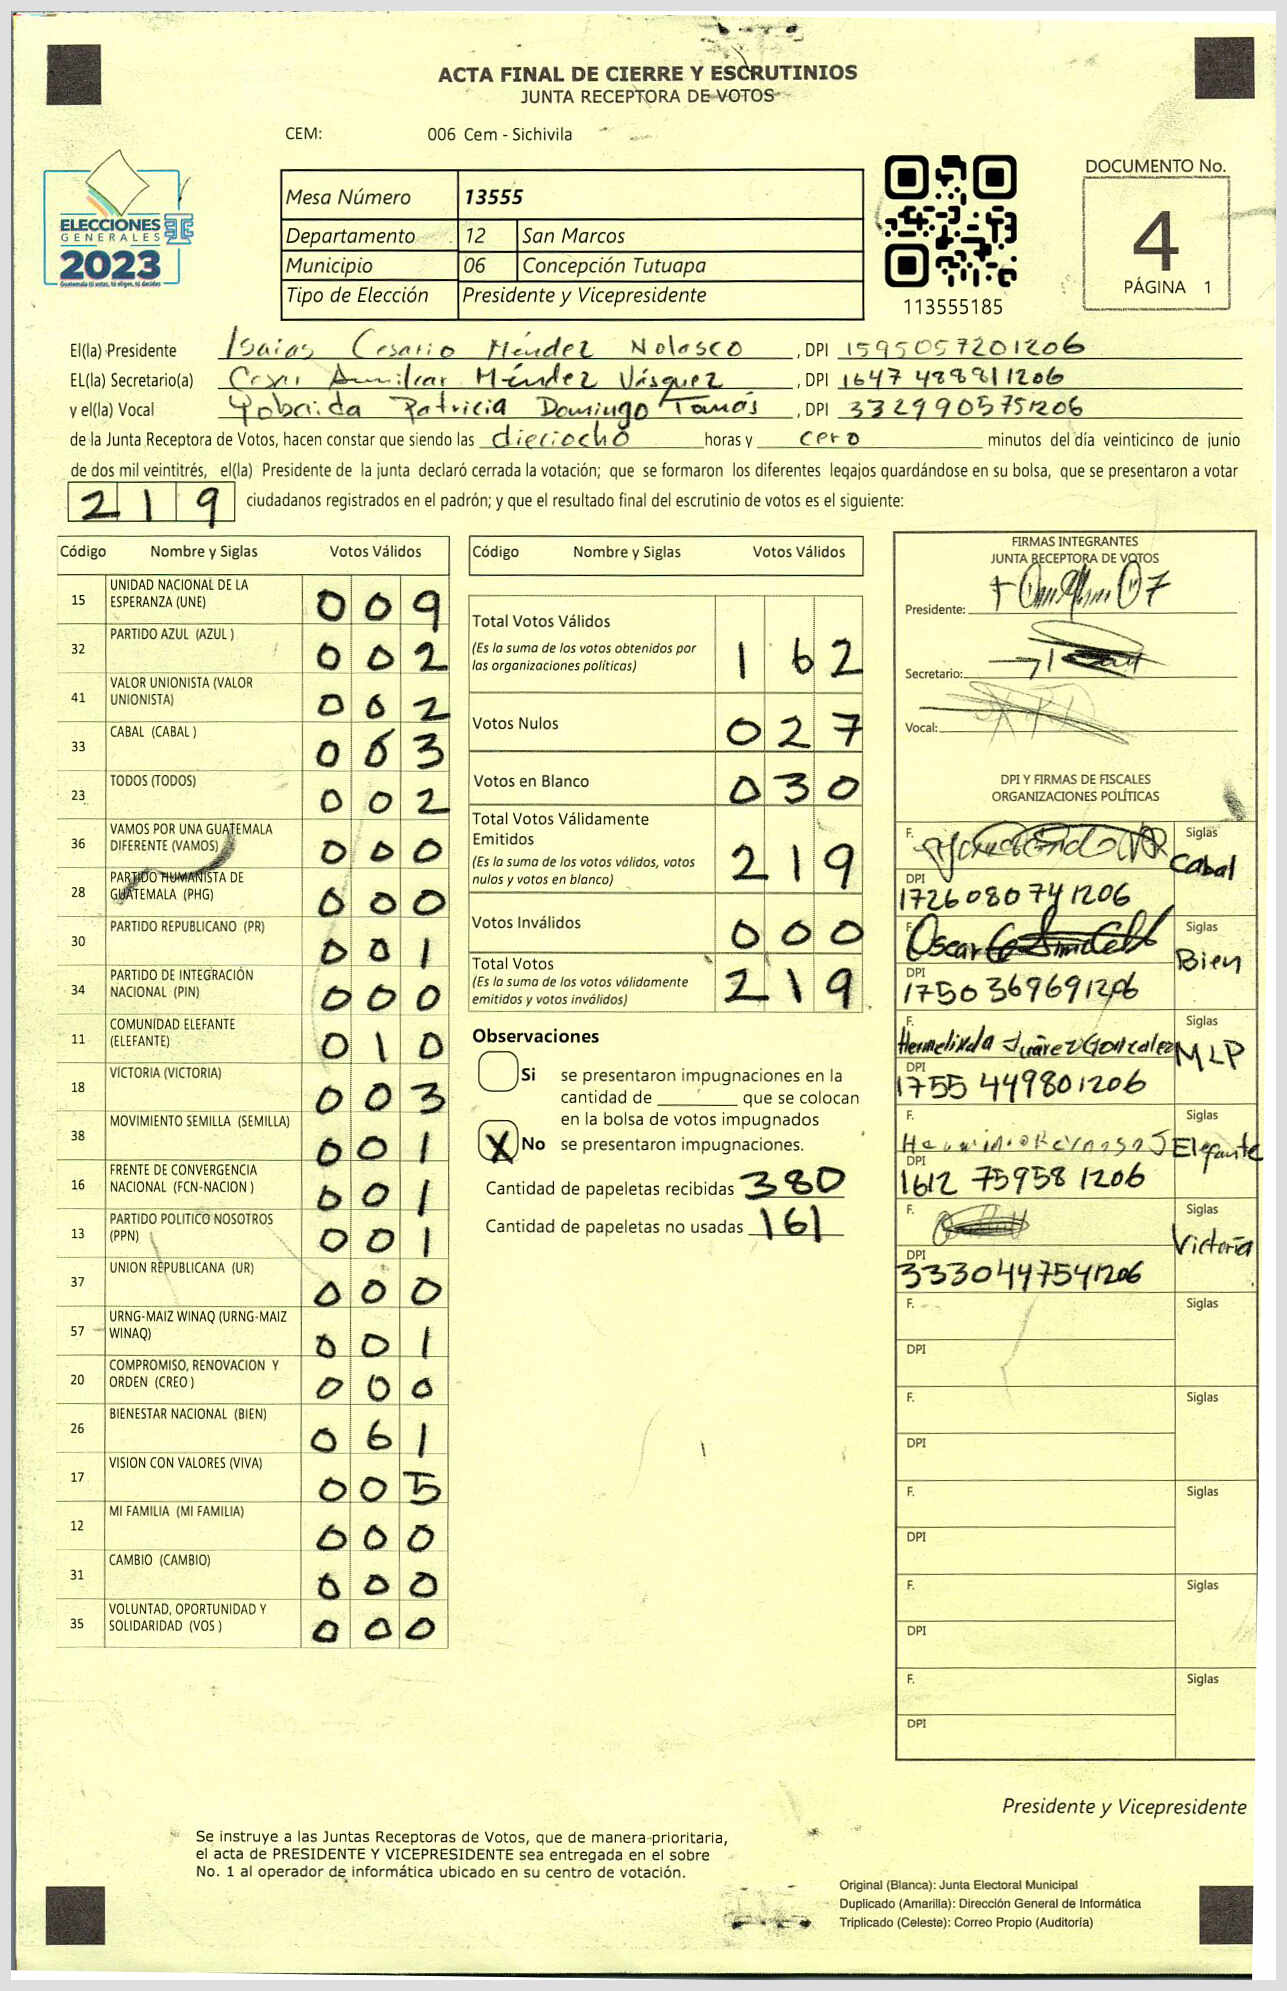 ACTA FINAL DE CIERRE Y ESCRUTINIOS
JUNTA RECEPTORA DE VOTOS
CEM: 006 Cem - Sichivila
ELECCIONES
GENERALES
2023
Guatemala tú votas, tú eliges, tú decides
Mesa Número 13555
Departamento 12 San Marcos
Municipio 06 Concepción Tutuapa
Tipo de Elección Presidente y Vicepresidente
113555185
DOCUMENTO No.
4
PÁGINA 1
El(la) Presidente Isaias Cesario Méndez Nolasco, DPI 1595057201206
EL(la) Secretario(a) Cesar Amilcar Méndez Vásquez, DPI 1647488811206
y el(la) Vocal Yobeida Patricia Domingo Tomás, DPI 3329905751206
de la Junta Receptora de Votos, hacen constar que siendo las dieciocho horas y cero minutos del día veinticinco de junio
de dos mil veintitrés, el(la) Presidente de la junta declaró cerrada la votación; que se formaron los diferentes legajos guardándose en su bolsa, que se presentaron a votar
219 ciudadanos registrados en el padrón; y que el resultado final del escrutinio de votos es el siguiente:
Código Nombre y Siglas Votos Válidos
15 UNIDAD NACIONAL DE LA ESPERANZA (UNE) 009
32 PARTIDO AZUL (AZUL ) 002
41 VALOR UNIONISTA (VALOR UNIONISTA) 002
33 CABAL (CABAL ) 003
23 TODOS (TODOS) 002
36 VAMOS POR UNA GUATEMALA DIFERENTE (VAMOS) 000
28 PARTIDO HUMANISTA DE GUATEMALA (PHG) 000
30 PARTIDO REPUBLICANO (PR) 001
34 PARTIDO DE INTEGRACIÓN NACIONAL (PIN) 000
11 COMUNIDAD ELEFANTE (ELEFANTE) 010
18 VICTORIA (VICTORIA) 003
38 MOVIMIENTO SEMILLA (SEMILLA) 001
16 FRENTE DE CONVERGENCIA NACIONAL (FCN-NACION ) 001
13 PARTIDO POLITICO NOSOTROS (PPN) 001
37 UNION REPUBLICANA (UR) 000
57 URNG-MAIZ WINAQ (URNG-MAIZ WINAQ) 001
20 COMPROMISO, RENOVACION Y ORDEN (CREO ) 000
26 BIENESTAR NACIONAL (BIEN) 061
17 VISION CON VALORES (VIVA) 005
12 MI FAMILIA (MI FAMILIA) 000
31 CAMBIO (CAMBIO) 000
35 VOLUNTAD, OPORTUNIDAD Y SOLIDARIDAD (VOS ) 000
Código Nombre y Siglas Votos Válidos
Total Votos Válidos 162
(Es la suma de los votos obtenidos por
las organizaciones políticas)
Votos Nulos 027
Votos en Blanco 030
Total Votos Válidamente
Emitidos 219
(Es la suma de los votos válidos, votos
nulos y votos en blanco)
Votos Inválidos 000
Total Votos 219
(Es la suma de los votos válidamente
emitidos y votos inválidos)
Observaciones
Si se presentaron impugnaciones en la
cantidad de ________ que se colocan
en la bolsa de votos impugnados
X No se presentaron impugnaciones.
Cantidad de papeletas recibidas 380
Cantidad de papeletas no usadas 161
FIRMAS INTEGRANTES
JUNTA RECEPTORA DE VOTOS
Presidente:
Secretario:
Vocal:
DPI Y FIRMAS DE FISCALES
ORGANIZACIONES POLÍTICAS
F. Siglas
Cabal
DPI
1726080741206
F. Oscar Siglas
Bien
DPI
1750369691206
F. Siglas
Hermelinda Juárez Gonzalez MLP
DPI
1755449801206
F. Siglas
Elefante
DPI
1612759581206
F. Siglas
Victoria
DPI
3330447541206
F. Siglas
DPI
F. Siglas
DPI
F. Siglas
DPI
F. Siglas
DPI
F. Siglas
DPI
Presidente y Vicepresidente
Se instruye a las Juntas Receptoras de Votos, que de manera prioritaria,
el acta de PRESIDENTE Y VICEPRESIDENTE sea entregada en el sobre
No. 1 al operador de informática ubicado en su centro de votación.
Original (Blanca): Junta Electoral Municipal
Duplicado (Amarilla): Dirección General de Informática
Triplicado (Celeste): Correo Propio (Auditoría)